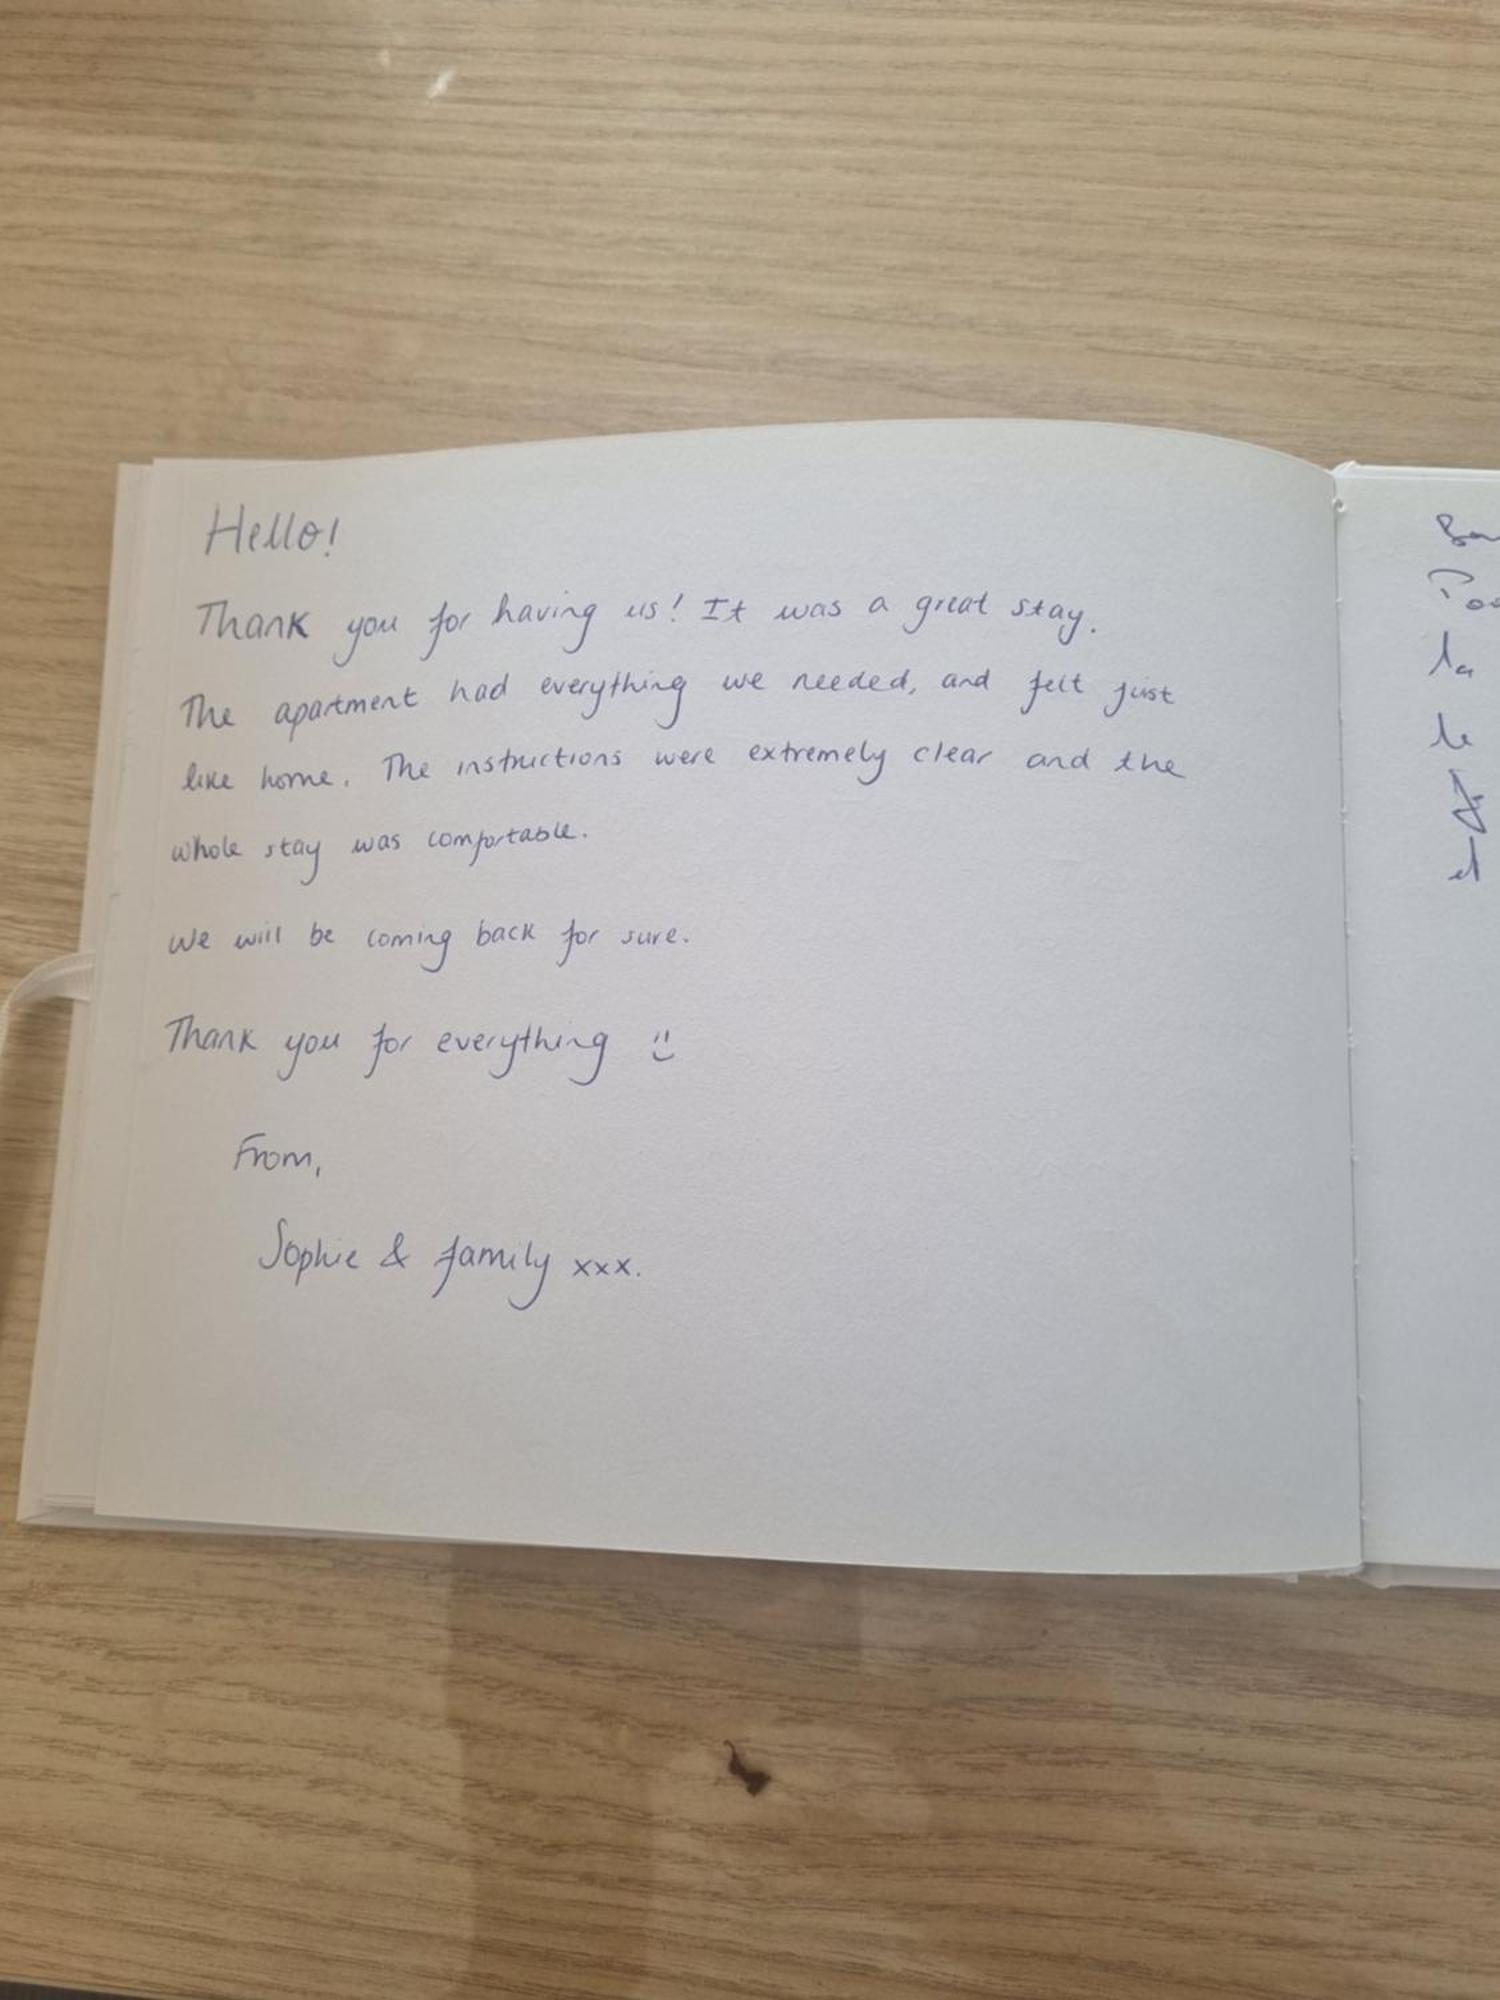 Hello!
Thank you for having us! It was a great stay.
The apartment had everything we needed, and felt just
like home. The instructions were extremely clear and the
whole stay was comfortable.
We will be coming back for sure.
Thank you for everything :)
From,
Sophie & family xxx.
la
le
et